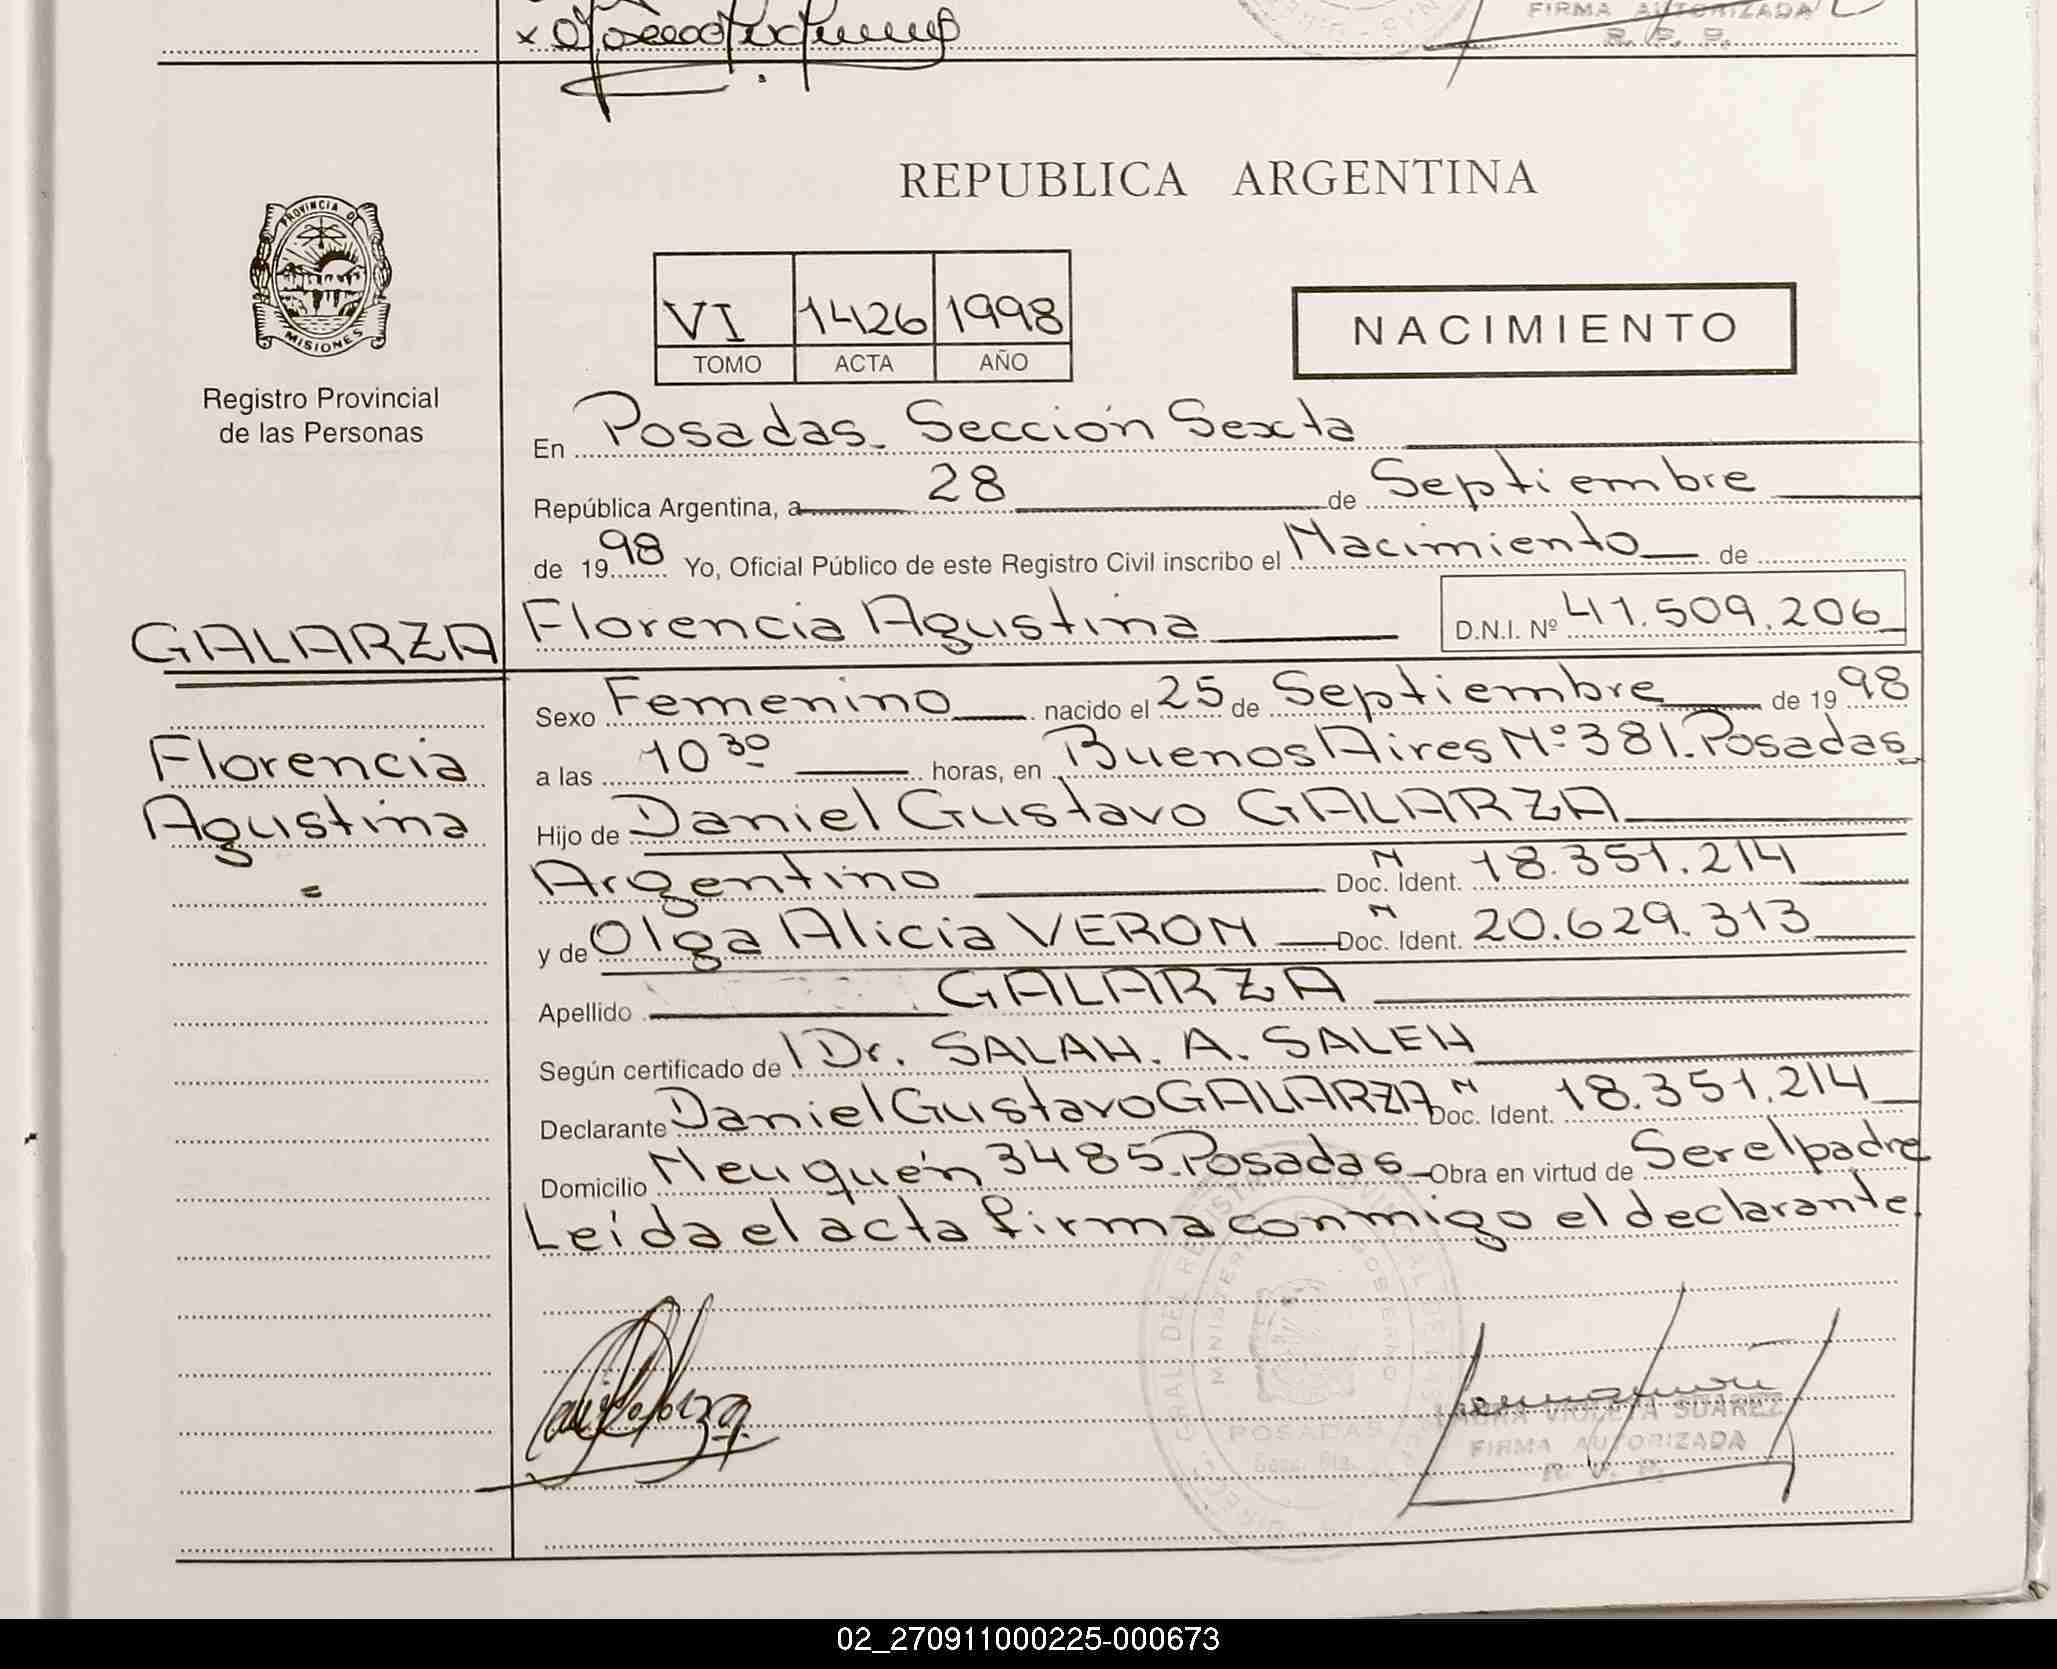 FIRMA AUTORIZADA
R. P. P.
PROVINCIA DE
MISIONES
Registro Provincial
de las Personas
REPUBLICA ARGENTINA
VI 1426 1998
TOMO ACTA AÑO
NACIMIENTO
En Posadas. Sección Sexta
República Argentina, a 28 de Septiembre
de 1998 Yo, Oficial Público de este Registro Civil inscribo el Nacimiento de
GALARZA Florencia Agustina D.N.I. Nº 41.509.206
Sexo Femenino nacido el 25 de Septiembre de 1998
Florencia
a las 10 30 horas, en Buenos Aires Nº 381. Posadas
Agustina
Hijo de Daniel Gustavo GALARZA
Argentino N Doc. Ident. 18.351.214
y de Olga Alicia VERON N Doc. Ident. 20.629.313
Apellido GALARZA
Según certificado de Dr. SALAH. A. SALEH
Declarante Daniel Gustavo GALARZA N Doc. Ident. 18.351.214
Domicilio Neuquén 3485. Posadas Obra en virtud de Ser el padre
Leída el acta firma conmigo el declarante.
POSADAS
LAURA VIOLETA SUAREZ
FIRMA AUTORIZADA
R. P. P.
02_270911000225-000673